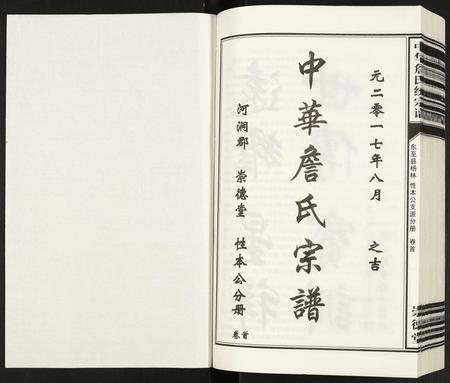 元二零一七年八月 之吉
中華詹氏宗譜
河澗郡 崇德堂 性本公分册
卷首
东至县杨林 性本公支派分册 卷首
崇德堂